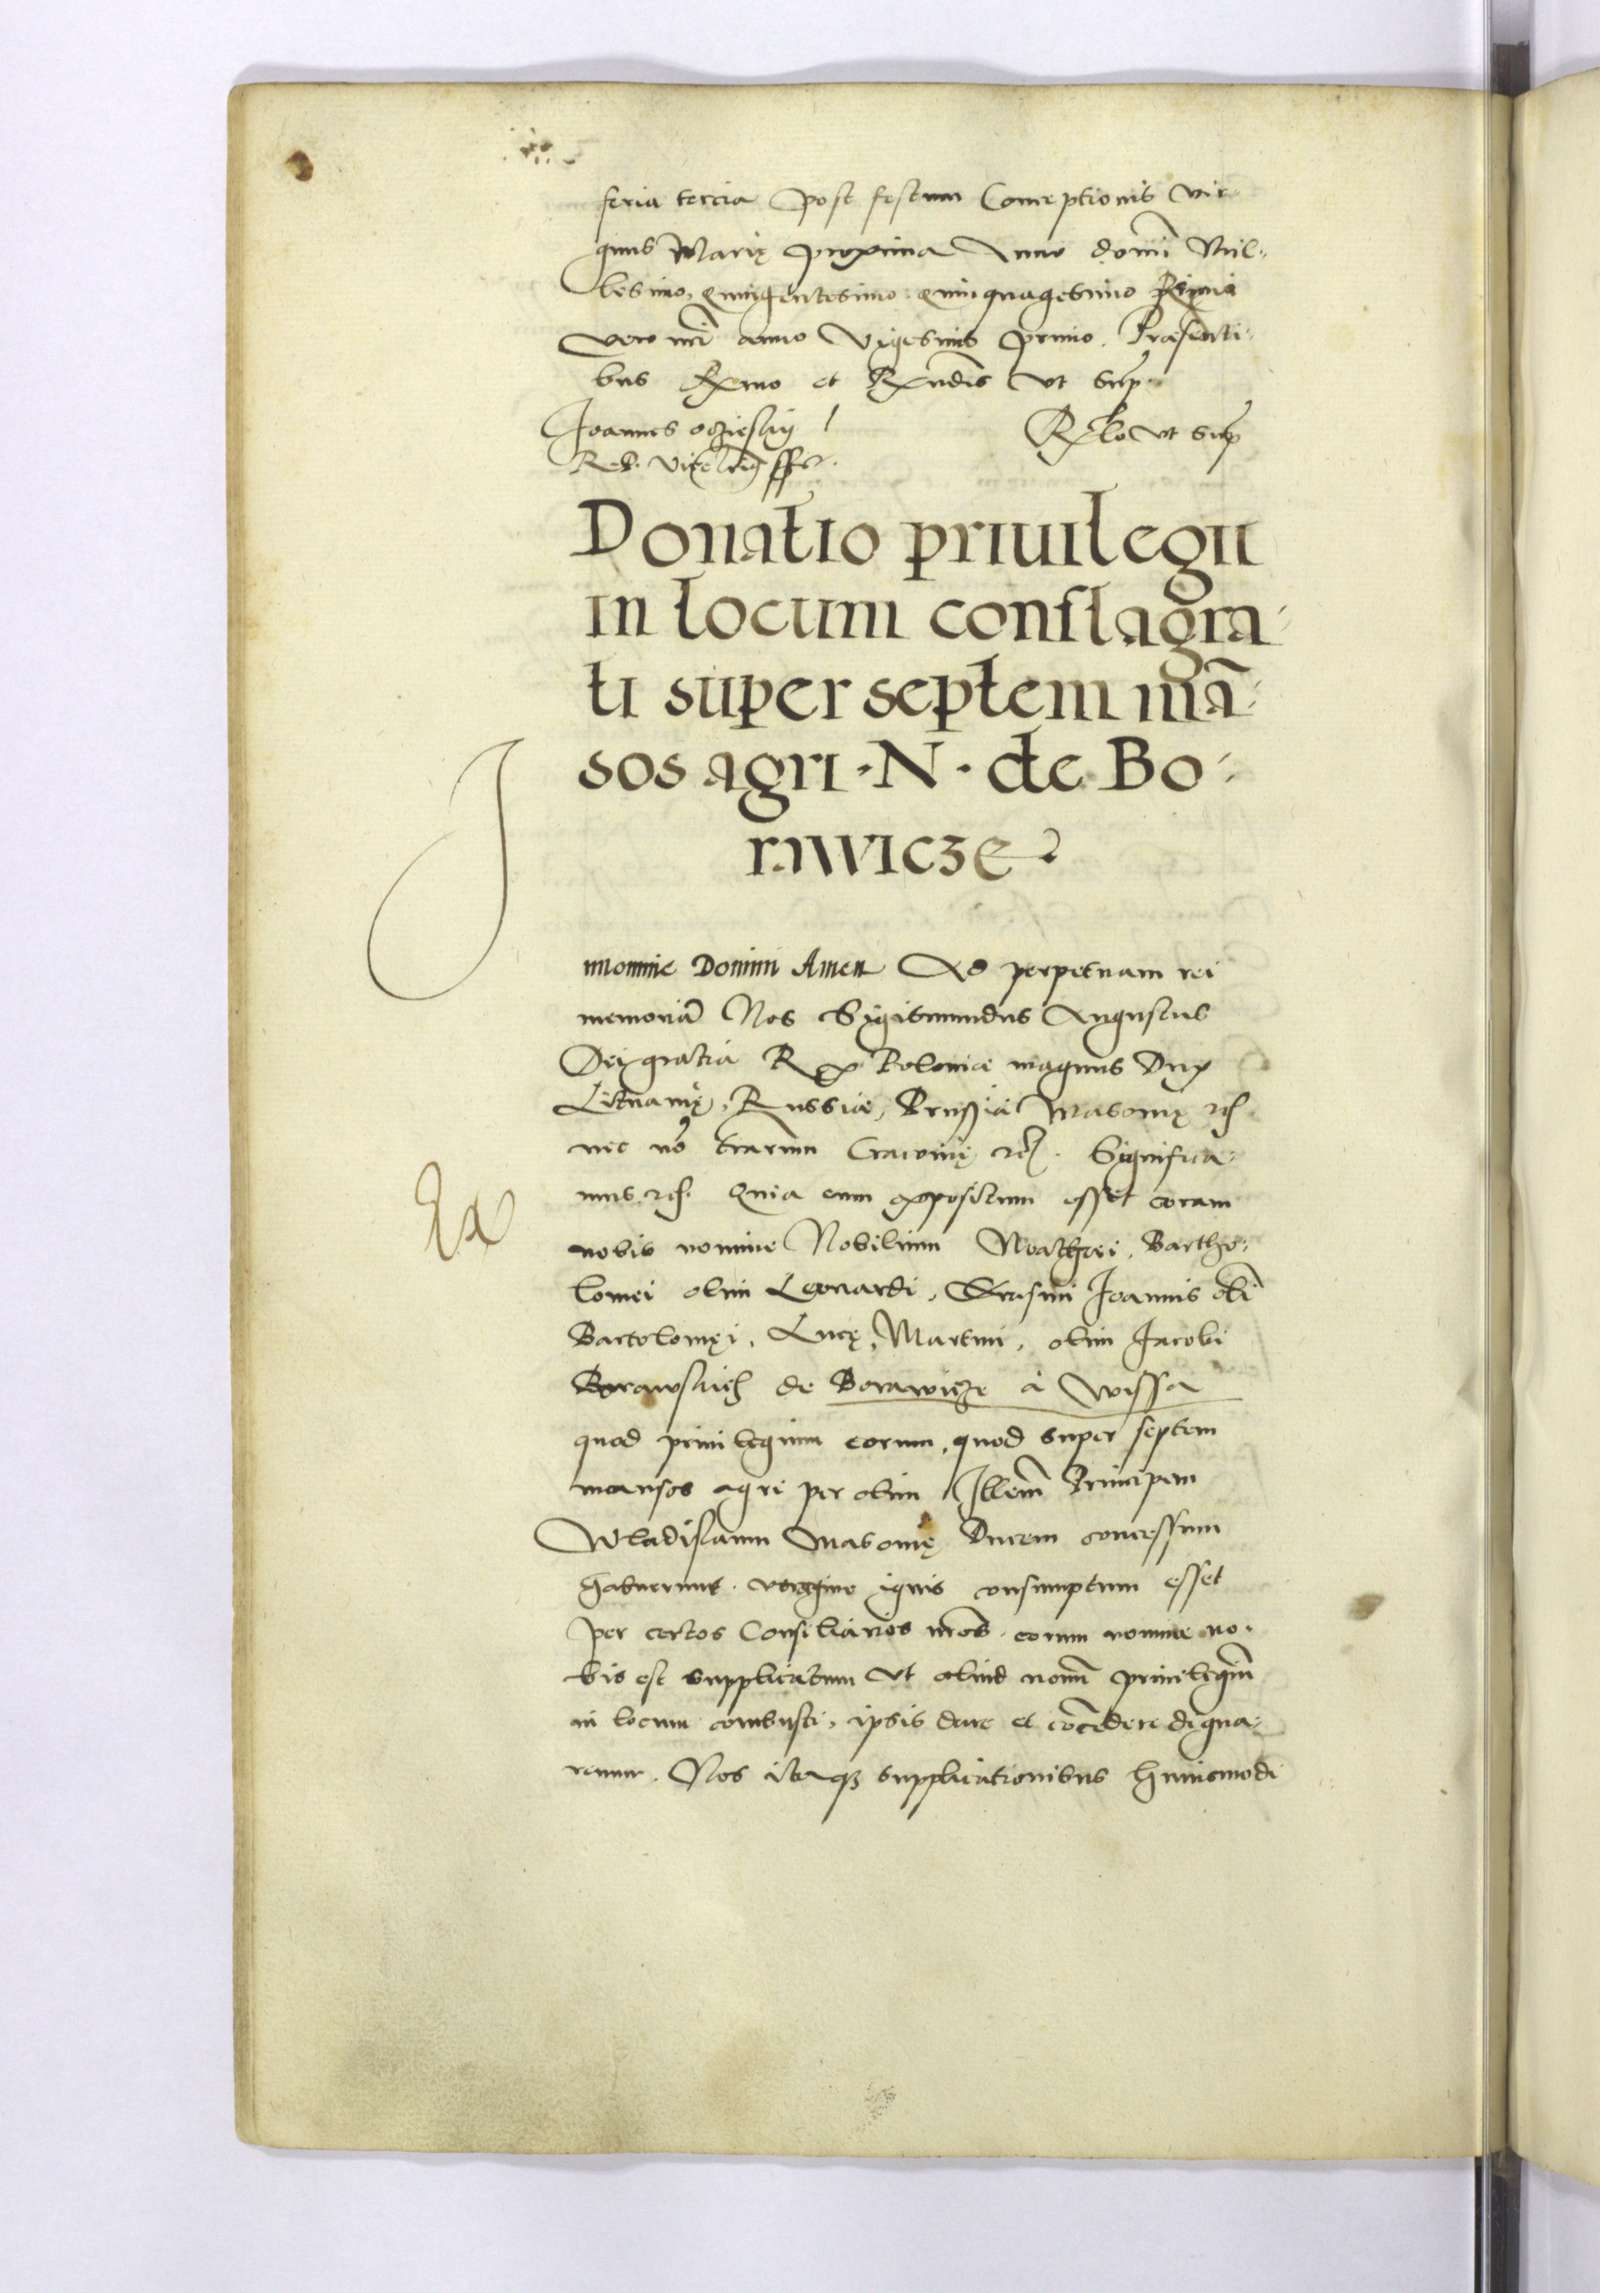 feria tercia post festum Conceptionis Vir-
ginis Marię proxima Anno domī Mil-
lesimo, Quingentesimo Quinquagesimo Regni
vero nri anno Vigesimo primo. Præsenti-
bus Rxmo et Rxndis ut Sup.
Joannes oczieskij Rxlo ut sup
R. P. Vicecancella. sst.
Donatio priuilegii
in locum conflagra-
ti super septem mā-
sos agri · N · de Bo-
rawicze
J
nnomine Domini Amen Ad perpetuam rei
memoriā Nos Sigismundus Augustus
Dei gratia Rex Poloniæ magnus Dux
Lituanię, Russiæ, Prussiæ Masouię etc
nec nō terrarum Cracouię etc. Significa-
mus etc. Quia cum expositum esset coram
nobis nomine Nobilium Mathei, Bartho-
lomei olim Leonardi, Erasmi Joannis olī
Bartolomęi, Lucę, Martini, olim Jacobi
Borawskich de Borawicze à Wissa
quod priuilegium eorum, quod super septem
mansos agri per olim Illem̄ Principem
Wladislaum Masouię Ducem concessum
habuerunt. voragine ignis consumptum esset
per certos Consiliarios nr̄os eorum nomine no-
bis est supplicatum Ut aliud nouū priuilegiū
in locum combusti, ipsis dare et cōcedere digna-
remur. Nos itaq; supplicationibus huiusmodi